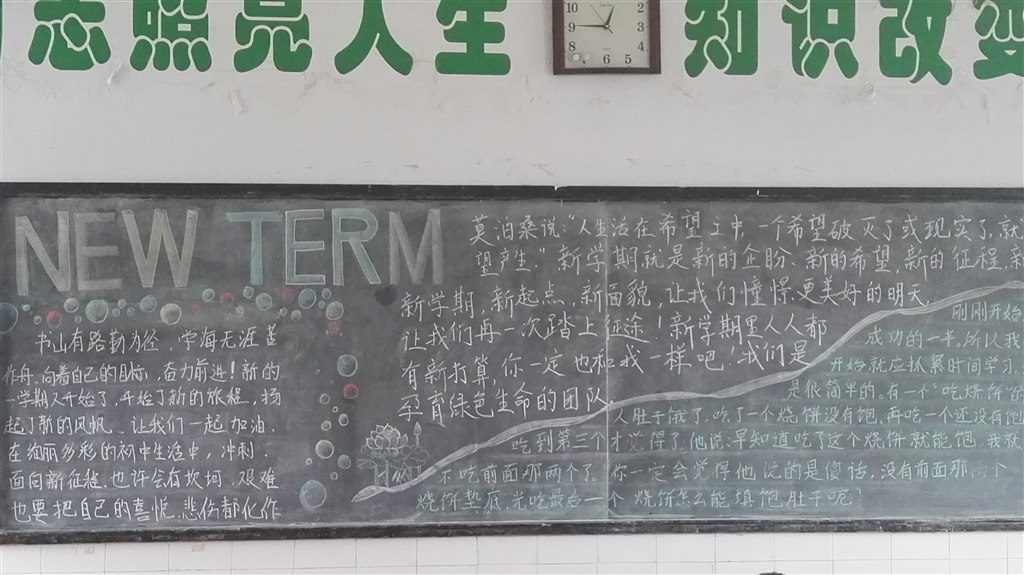 志照亮人生
知识改变
10 9 8 2 3 4 6 5
NEW TERM
书山有路勤为径,学海无涯苦
作舟,向着自己的目标,奋力前进!新的
一学期又开始了,开始了新的旅程,扬
起了新的风帆,让我们一起加油,
在绚丽多彩的初中生活中,冲刺,
面向新征程,也许会有坎坷,艰难
也要把自己的喜悦,悲伤都化作
莫泊桑说:"人生活在希望之中,一个希望破灭了或现实了,就
望产生"新学期就是新的企盼、新的希望,新的征程,新
新学期,新起点,新面貌,让我们憧憬更美好的明天,
让我们再一次踏上征途!新学期里人人都
有新打算,你一定也和我一样吧!我们是
孕育绿色生命的团队
刚刚开始
成功的一半。所以我
开始就应抓紧时间学习,
是很简单的。有一个"吃烧饼的
人肚子饿了,吃了一个烧饼没有饱,再吃一个还没有饱
吃到第三个才觉得了,他说:早知道吃了这个烧饼就能饱,我就
不吃前面那两个了。你一定会觉得他说的是傻话,没有前面那个
烧饼垫底,光吃最后一个烧饼怎么能填饱肚子呢?